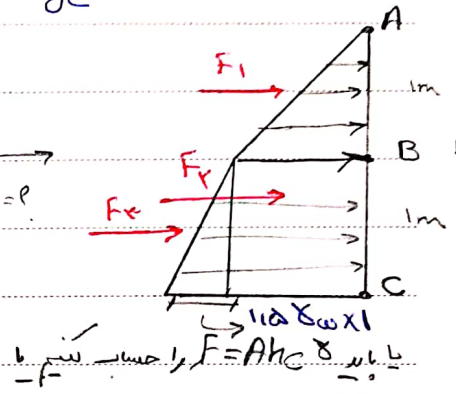 A
F₁
1m
B
F₂
=?
F₃
1m
C
۱٫۵ γω×۱
یا باید F=Ahc γ را حساب کنیم یا